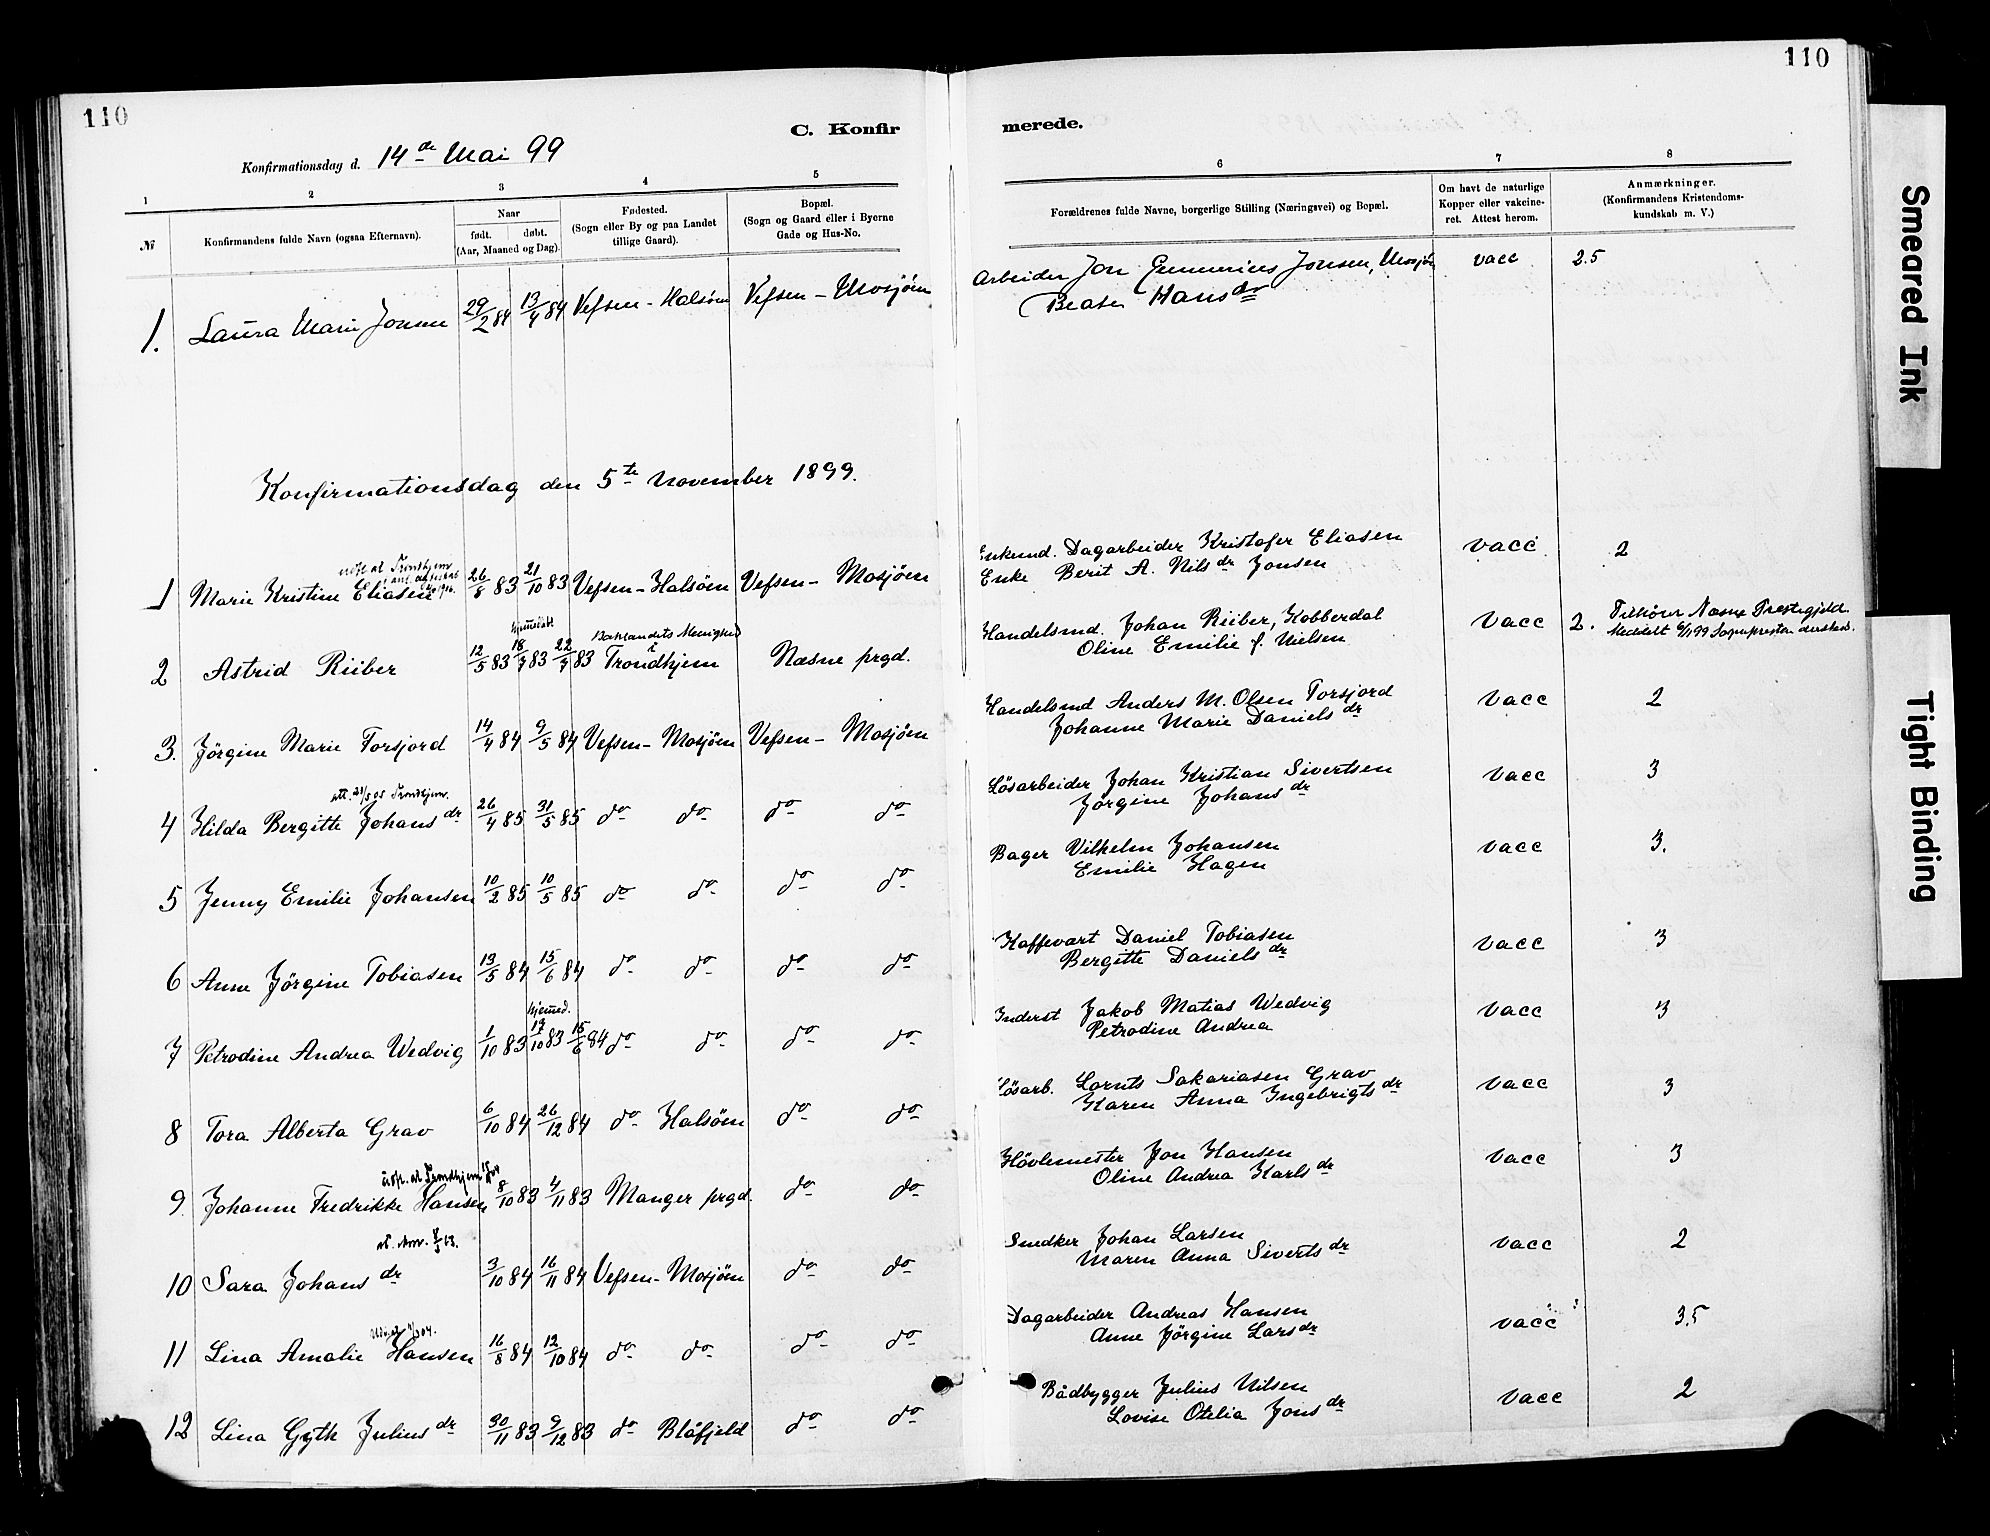 110
110
C. Konfir
merede.
Konfirmationsdag d. 14de Mai 99
1 2 3 4 5 6 7 8
№
Konfirmandens fulde Navn (ogsaa Efternavn).
Naar
født. døbt.
(Aar, Maaned og Dag).
Fødested.
(Sogn eller By og paa Landet
tillige Gaard).
Bopæl.
(Sogn og Gaard eller i Byerne
Gade og Hus-No.
Forældrenes fulde Navne, borgerlige Stilling (Næringsvei) og Bopæl.
Om havt de naturlige
Kopper eller vakcine-
ret. Attest herom.
Anmærkninger.
(Konfirmandens Kristendoms-
kundskab m. V.)
1. Laura Marie Jonsen 29/2 84 13/4 84 Vefsen - Halsøen Vefsen - Mosjøen Arbeider Jon Gunnerius Jonsen, Mosjøn vacc 2.5
Beate Hansdr
Konfirmationsdag den 5te November 1899.
udst. at. Trondhjem
1 Marie Kristine Eliasen 26/8 83 21/10 83 Vefsen - Halsøen Vefsen - Mosjøen Enkemd. Dagarbeider Kristofer Eliasen vacc 2
Enke Berit A. Nilsdr Jonsen
hjemdøbt
Baklandets Menighed
2 Astrid Riiber 12/5 83 18/7 83 22/7 83 Trondhjem Næsne prgd. Handelsmd. Johan Riiber, Kobberdal vacc 2. Tilhører Næsne Prestegjeld.
Oline Emilie f. Nielsen Meddelt 6/11 99 Sognepresten dersteds.
3. Jørgine Marie Forsjord 14/4 84 9/5 84 Vefsen - Mosjøen Vefsen - Mosjøen Handelsmd Anders M. Olsen Forsjord vacc 2
Johanne Marie Danielsdr
att. 21/5 05 Trondhjem.
4 Hilda Bergitte Johansdr 26/4 85 31/5 85 do do do do Løsarbeider Johan Kristian Sivertsen vacc 3
Jørgine Johansdr
5 Jenny Emilie Johansen 10/2 85 10/5 85 do do do do Bager Vilhelm Johansen vacc 3.
Emilie Hagen
6 Anne Jørgine Tobiasen 13/5 84 15/6 84 do do do do Kaffevært Daniel Tobiasen vacc 3
Bergitte Danielsdr
hjemmed.
7 Petrodine Andrea Wedvig 1/10 83 17/10 83 15/6 84 do do do do Inderst Jakob Matias Wedvig vacc 3
Petrodine Andrea
8 Tora Alberta Grav 6/10 84 26/12 84 do Halsøen do do Løsarb. Lornts Sakariasen Grav vacc 3
Karen Anna Ingebrigtsdr
udst. at Trondhjem
9. Johanne Fredrikke Hansen 8/10 83 4/11 83 Manger prgd. do do Høvlemester Jon Hansen vacc 3
Oline Andrea Karlsdr
10 Sara Johansdr 3/10 84 16/11 84 Vefsen - Mosjøen do do Snedker Johan Larsen vacc 2
Maren Anna Sivertsdr
11 Lina Amalie Hansen 16/8 84 12/10 84 do do do do Dagarbeider Andreas Hansen vacc 3.5
Anne Jørgine Larsdr
12 Lina Gyth Juliusdr 30/11 83 9/12 83 do Blåfjeld do do Bådbygger Julius Nilsen vacc 2
Lovise Otelia Jonsdr
Smeared Ink
Tight Binding